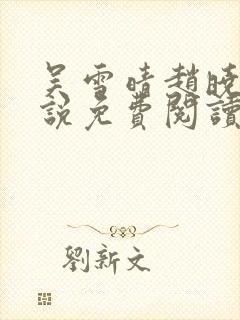 吴雪晴趙曉
說免費閱讀
劉新文